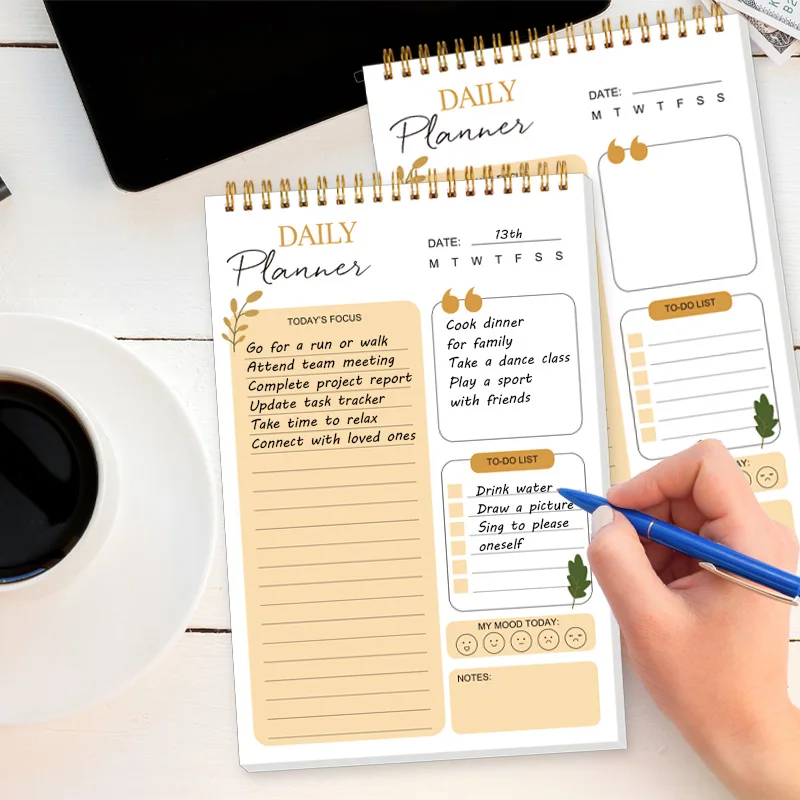 DAILY
Planner
DATE:
M T W T F S S
TO-DO LIST
AY:
DAILY
Planner
DATE: 13th
M T W T F S S
TODAY'S FOCUS
Go for a run or walk
Attend team meeting
Complete project report
Update task tracker
Take time to relax
Connect with loved ones
Cook dinner
for family
Take a dance class
Play a sport
with friends
TO-DO LIST
Drink water
Draw a picture
Sing to please
oneself
MY MOOD TODAY:
NOTES: